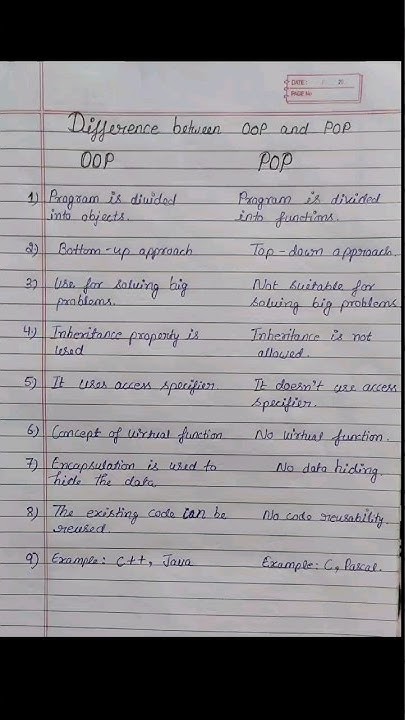 DATE: / / 20
PAGE No
Difference between OOP and POP
OOP POP
1) Program is divided Program is divided
into objects. into functions.
2) Bottom-up approach Top-down approach.
3) Use for solving big Not suitable for
problems. solving big problems
4) Inheritance property is Inheritance is not
used allowed.
5) It uses access specifier. It doesn't use access
specifier.
6) Concept of virtual function No virtual function.
7) Encapsulation is used to No data hiding.
hide the data
8) The existing code can be No code reusability.
reused.
9) Example: C++, Java Example: C, Pascal.